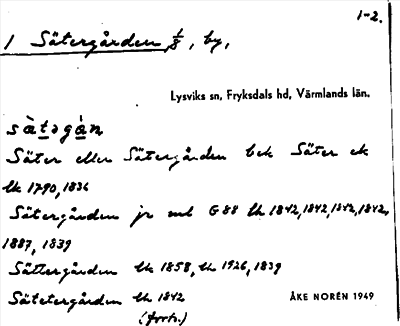 1-2.
1 Sätergården 1/8, by,
Lysviks sn, Fryksdals hd, Värmlands län.
sà̀təgán
Säter eller Sätergården bek Säter ek
lk 1790, 1836
Sätergården jr ml G 88 lk 1842, 1842, 1842, 1842,
1887, 1839
Sättergården lk 1858, lk 1926, 1839
Sätetergården lk 1842
(forts.)
ÅKE NORÉN 1949